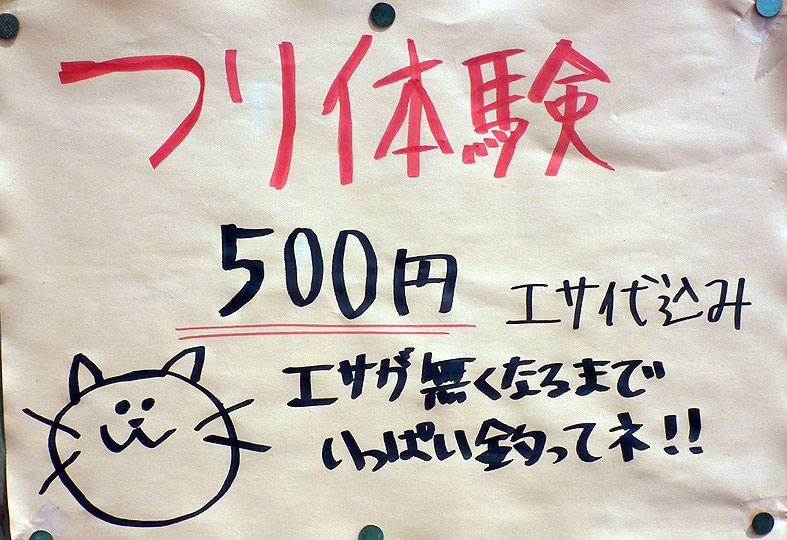 つり体験
500円 エサ代込み
エサが無くなるまで
いっぱい釣ってネ!!